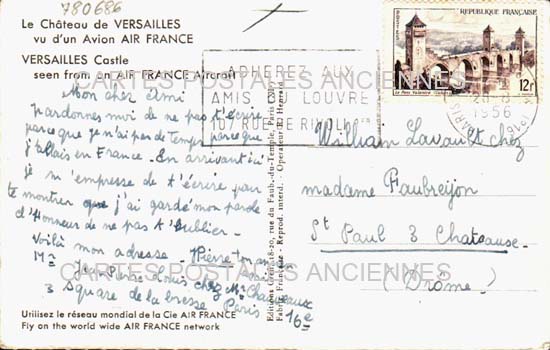 780686
Le Château de VERSAILLES
vu d'un Avion AIR FRANCE
VERSAILLES Castle
seen from an AIR FRANCE Aircraft
Mon cher Ami
pardonnes moi de ne pas t'écrire
parce que je n'ai pas de temps parce que
j'allais en France. En arrivant ici
je m'empresse de t'écrire pour
te montrer que j'ai gardé mon parole
d'Honneur de ne pas t'oublier.
Voilà mon adresse. Pierre ton ami
Mr Jean Pierre Louis chez Mr
3 Square de la bresse Paris 16e
Utilisez le réseau mondial de la Cie AIR FRANCE
Fly on the world wide AIR FRANCE network
Editions Greff, 18-20, rue du Faub.-du-Temple, Paris
Fabrication Française - Reprod. interd. - Operateur: E. Henrard
ADHEREZ AUX
AMIS DU LOUVRE
107 RUE DE RIVOLI
PARIS
1956
POSTES
REPUBLIQUE FRANÇAISE
Le Pont Valentré
12f
William Lavault chez
madame Flaubreyon
St Paul 3 Chateaux
(Drôme)
CARTES POSTALES ANCIENNES
CARTES POSTALES ANCIENNES